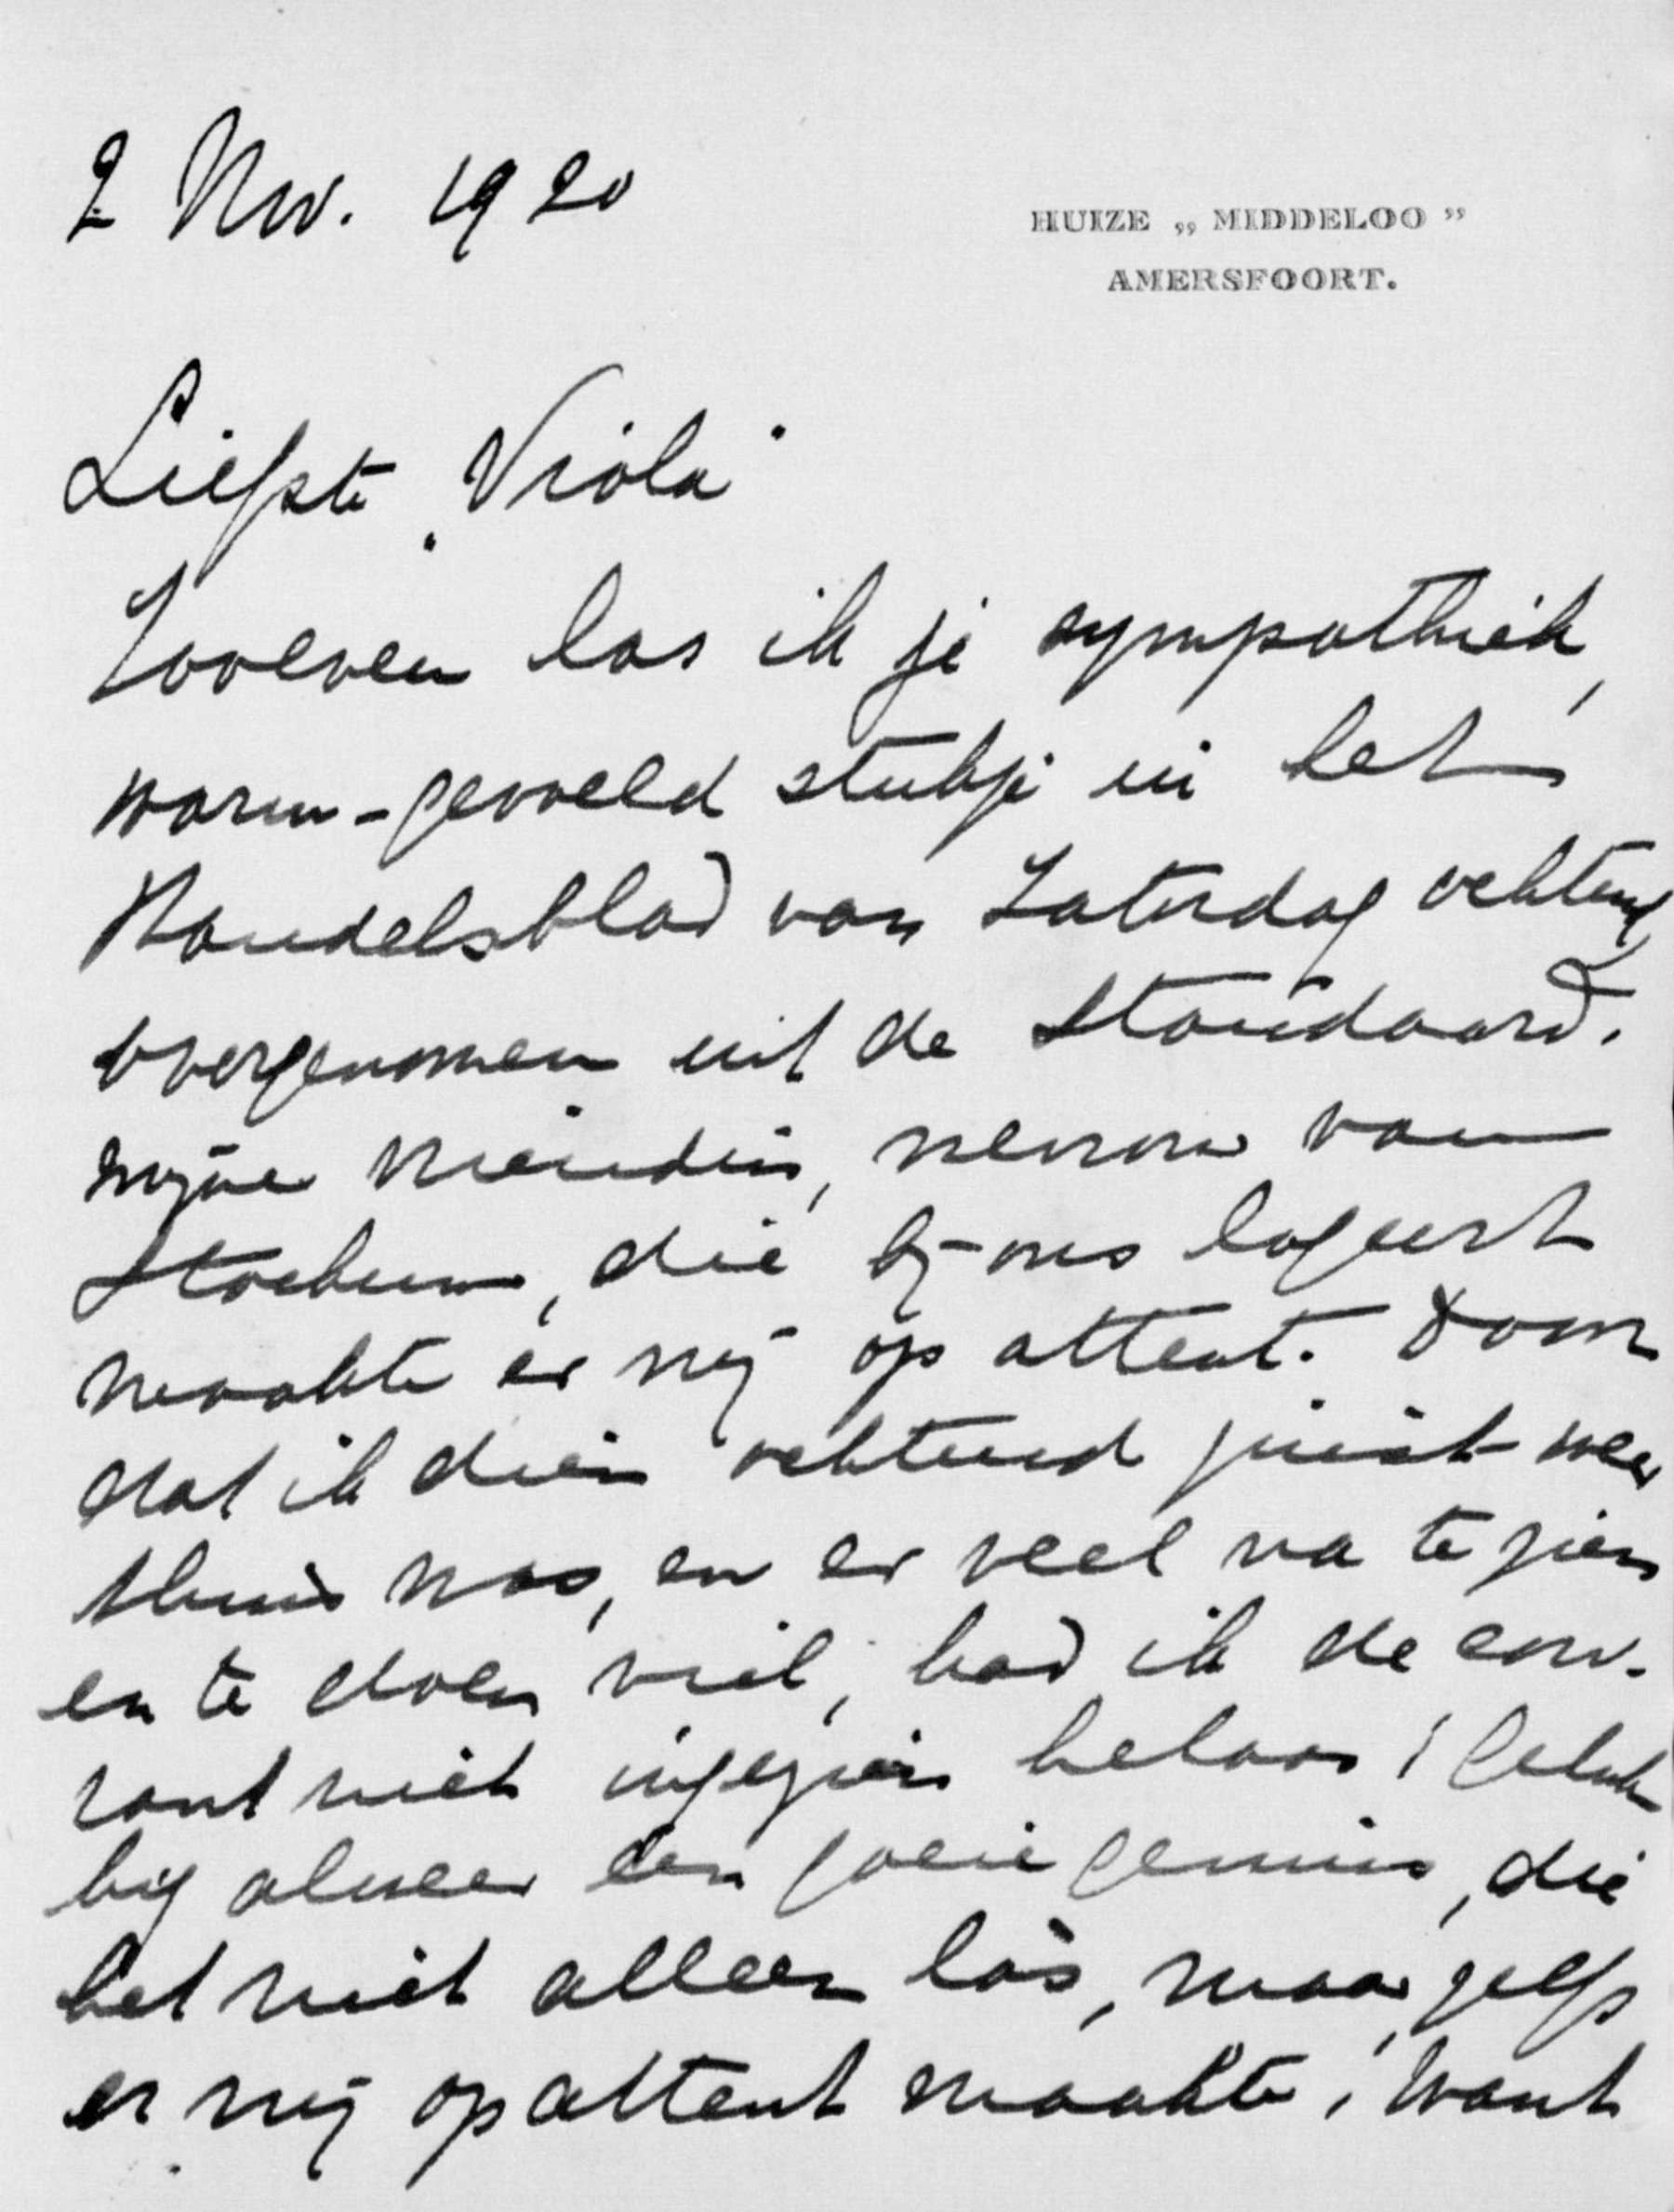 2 Nov. 1920
HUIZE „ MIDDELOO ”
AMERSFOORT.
Liefste „Viola"
Zooeven las ik je sympathiek,
warm-gevoeld stukje in het
Handelsblad van Zaterdag ochtend,
overgenomen uit de Standaard.
mijne vriendin, mevrouw van
Stockum, die bij ons logeert
maakte er mij op attent. Door
dat ik dien ochtend juist weer
thuis was, en er veel na te zien
en te doen viel, had ik de cou-
rant niet ingezien helaas! Geluk
kig alweer een goeie genius, die
het niet alleen las, maar zelfs
er mij op attent maakte! Want